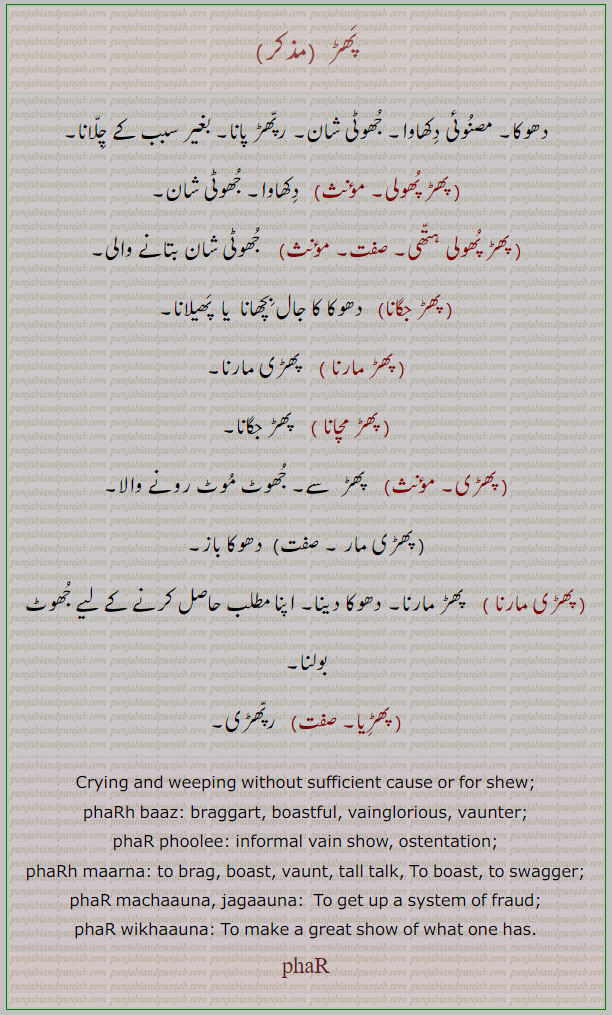 پَھڑ (مذکر)
دھوکا۔ مصنُوئی دِکھاوا۔ جُھوٹی شان۔ رپّھڑ پانا۔ بغیر سبب کے چِلّانا۔
(پھڑ پُھولی۔ مؤنث) دِکھاوا۔ جُھوٹی شان۔
(پھڑ پُھولی ہتّھی۔ صفت۔ مؤنث) جُھوٹی شان بتانے والی۔
(پھڑ جگانا) دھوکا کا جال بِچھانا یا پَھیلانا۔
(پھڑ مارنا ) پھڑی مارنا۔
(پھڑ مچانا ) پھڑ جگانا۔
(پھڑی۔ مؤنث) پھڑ سے۔ جُھوٹ مُوٹ رونے والا۔
(پھڑی مار ۔ صفت) دھوکا باز۔
(پھڑی مارنا ) پھڑ مارنا۔ دھوکا دینا۔ اپنا مطلب حاصل کرنے کے لیے جُھوٹ
بولنا۔
(پھڑِیا۔ صفت) رپّھڑی۔
Crying and weeping without sufficient cause or for shew;
phaRh baaz: braggart, boastful, vainglorious, vaunter;
phaR phoolee: informal vain show, ostentation;
phaRh maarna: to brag, boast, vaunt, tall talk, To boast, to swagger;
phaR machaauna, jagaauna: To get up a system of fraud;
phaR wikhaauna: To make a great show of what one has.
phaR